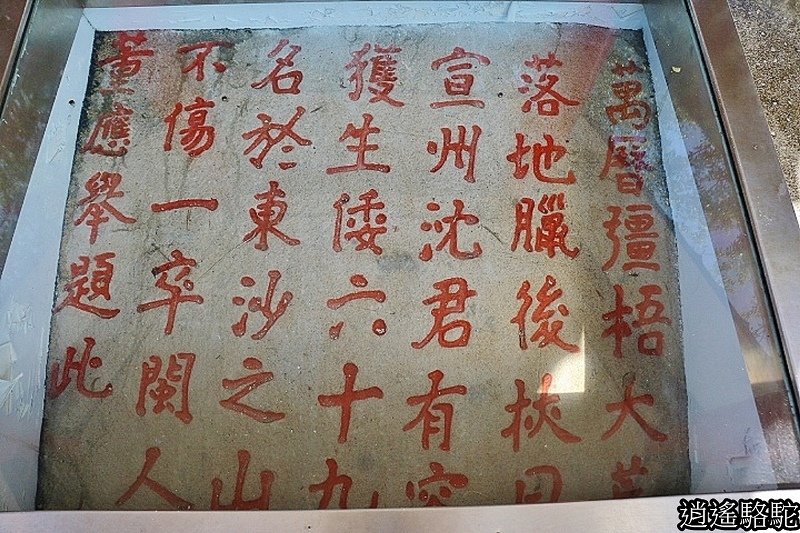 萬曆彊梧大荒
落地臘後挾日
宣州沈君有容
獲生倭六十九
名於東沙之山
不傷一卒閩人
董應舉題此
逍遙駱駝